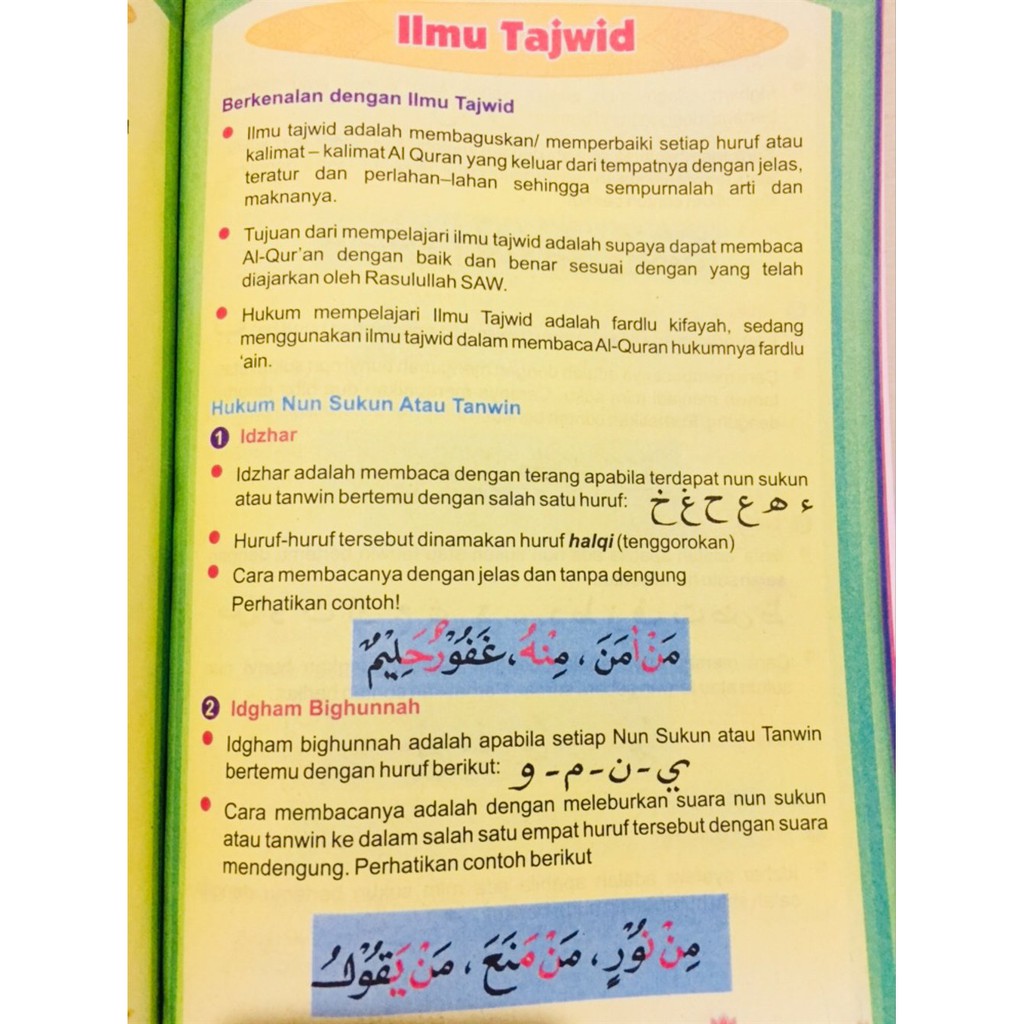 Ilmu Tajwid
Berkenalan dengan Ilmu Tajwid
• Ilmu tajwid adalah membaguskan/ memperbaiki setiap huruf atau
kalimat – kalimat Al Quran yang keluar dari tempatnya dengan jelas,
teratur dan perlahan–lahan sehingga sempurnalah arti dan
maknanya.
• Tujuan dari mempelajari ilmu tajwid adalah supaya dapat membaca
Al-Qur'an dengan baik dan benar sesuai dengan yang telah
diajarkan oleh Rasulullah SAW.
• Hukum mempelajari Ilmu Tajwid adalah fardlu kifayah, sedang
menggunakan ilmu tajwid dalam membaca Al-Quran hukumnya fardlu
'ain.
Hukum Nun Sukun Atau Tanwin
1 Idzhar
• Idzhar adalah membaca dengan terang apabila terdapat nun sukun
atau tanwin bertemu dengan salah satu huruf: ء ه ع ح غ خ
• Huruf-huruf tersebut dinamakan huruf halqi (tenggorokan)
• Cara membacanya dengan jelas dan tanpa dengung
Perhatikan contoh!
مَنْ اٰمَنَ ، مِنْهُ ، غَفُوْرٌ حَلِيْمٌ
2 Idgham Bighunnah
• Idgham bighunnah adalah apabila setiap Nun Sukun atau Tanwin
bertemu dengan huruf berikut: ي - ن - م - و
• Cara membacanya adalah dengan meleburkan suara nun sukun
atau tanwin ke dalam salah satu empat huruf tersebut dengan suara
mendengung. Perhatikan contoh berikut
مِنْ نُوْرٍ ، مَنْ مَنَعَ ، مَنْ يَقُوْلُ